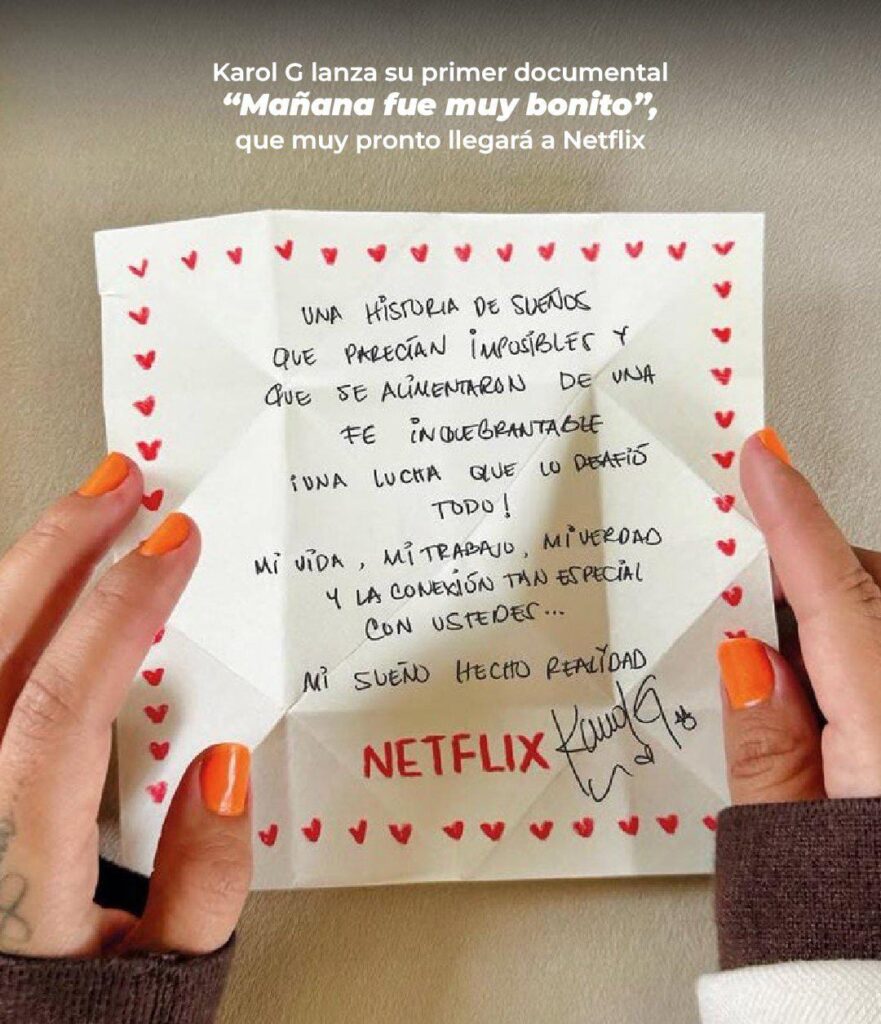 Karol G lanza su primer documental
“Mañana fue muy bonito”,
que muy pronto llegará a Netflix
UNA HISTORIA DE SUEÑOS
QUE PARECÍAN IMPOSIBLES Y
QUE SE ALIMENTARON DE UNA
FE INQUEBRANTABLE
¡UNA LUCHA QUE LO DESAFIÓ
TODO!
MI VIDA, MI TRABAJO, MI VERDAD
Y LA CONEXIÓN TAN ESPECIAL
CON USTEDES...
MI SUEÑO HECHO REALIDAD
NETFLIX Karol G